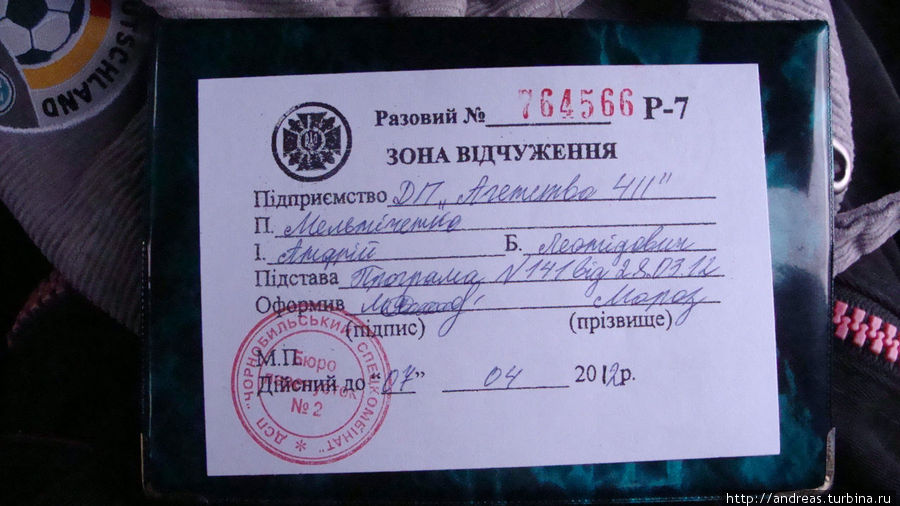 DEUTSCHLAND
Разовий № 764566 Р-7
ЗОНА ВІДЧУЖЕННЯ
Підприємство ДП „Агетство ЧІІ"
П. Мельніченко
І. Андрій Б. Леонідович
Підстава Програма N 141 від 28.03.12
Оформив Мороз
(підпис) (прізвище)
М.П.
Дійсний до "07" 04 2012р.
ДСП "ЧОРНОБИЛЬСЬКИЙ СПЕЦКОМБІНАТ"
Бюро
перепусток
№ 2
http://andreas.turbina.ru